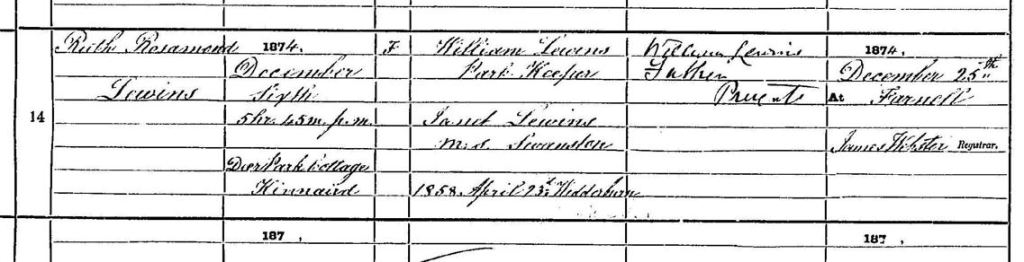 14
Ruth Rosamond
Lewins
1874.
December
Sixth
5 hr. 45 m. p.m.
Deer Park Cottage
Kinnaird
F
William Lewins
Park Keeper
Janet Lewins
m.s. Swanston
1858. April 23rd Wedderburn
William Lewins
Father
Present
1874.
December 25th
At Farnell
James Webster Registrar.
187 .
187 .